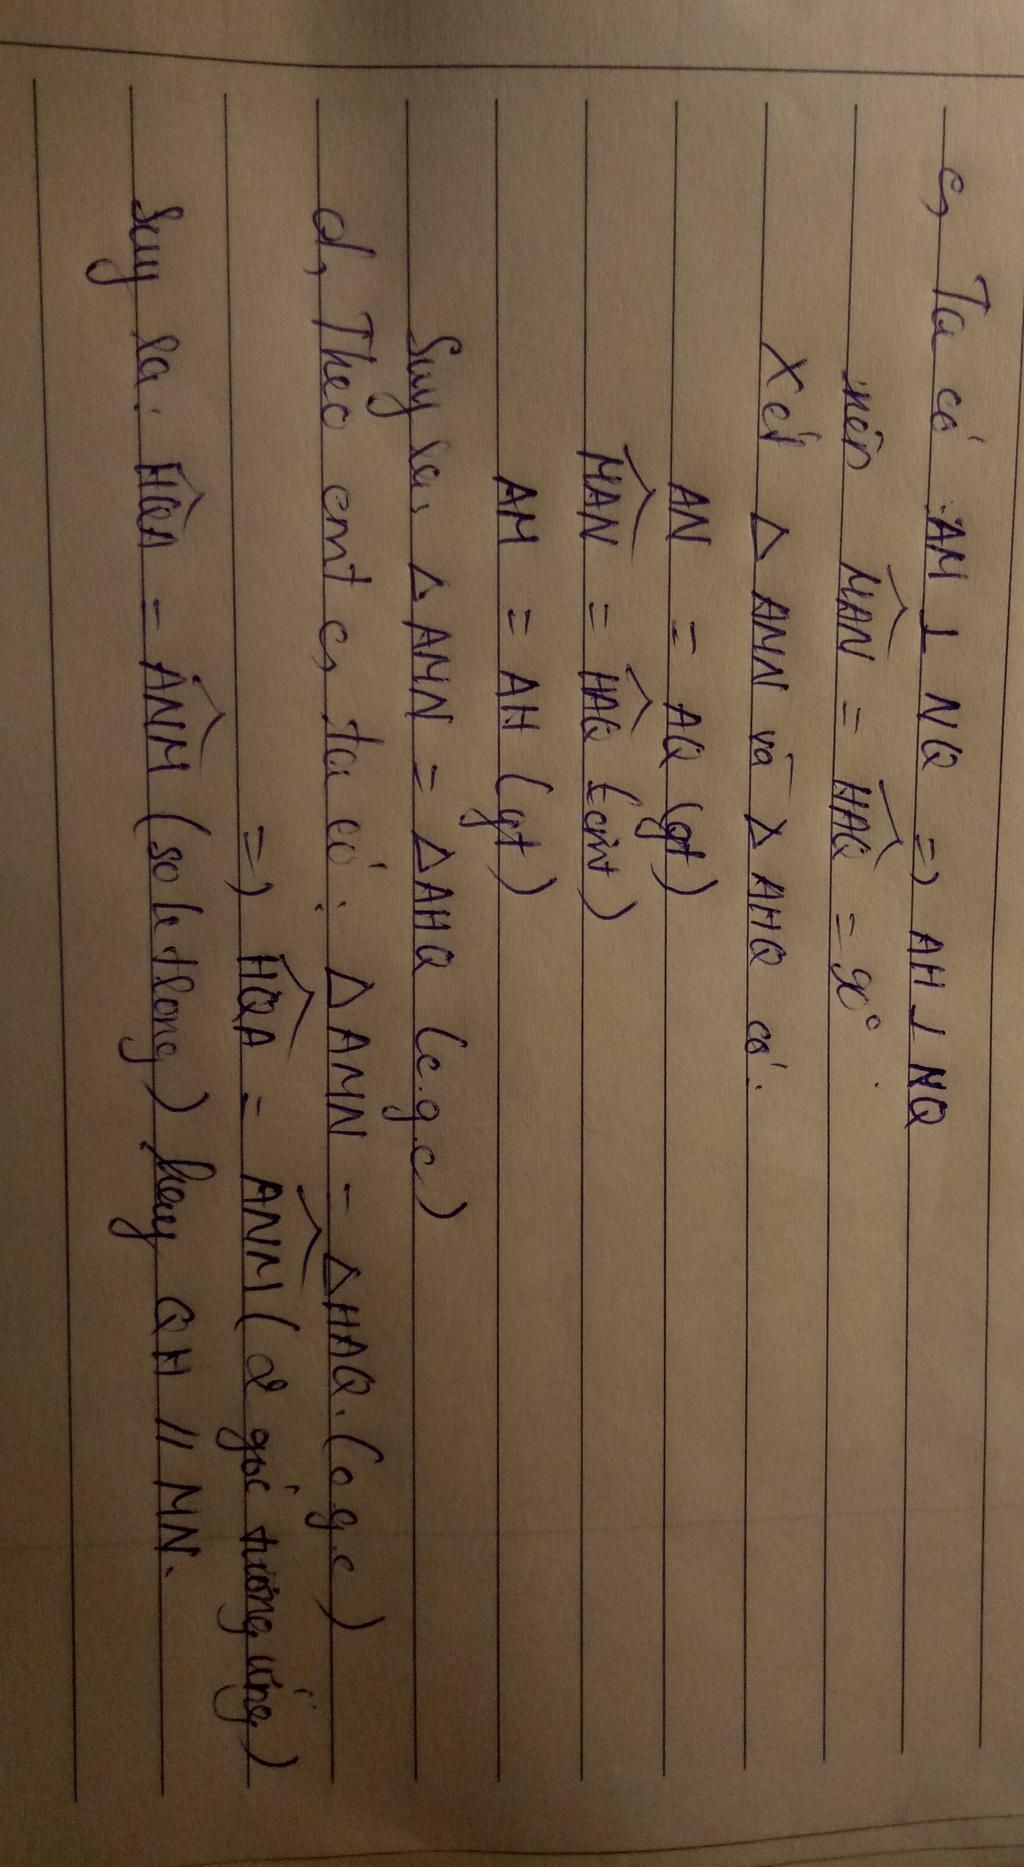 c, Ta có AM ⊥ NQ => AH ⊥ NQ
nên MAN = HAQ = 90°
Xét Δ AMN và Δ AHQ có:
AN = AQ (gt)
MAN = HAQ (cmt)
AM = AH (gt)
Suy ra, Δ AMN = Δ AHQ (c.g.c)
d, Theo cmt c, ta có: Δ AMN = Δ HAQ. (c.g.c)
=> HQA = ANM (2 góc tương ứng)
Suy ra: HQA = ANM (so le trong) hay QH // MN.